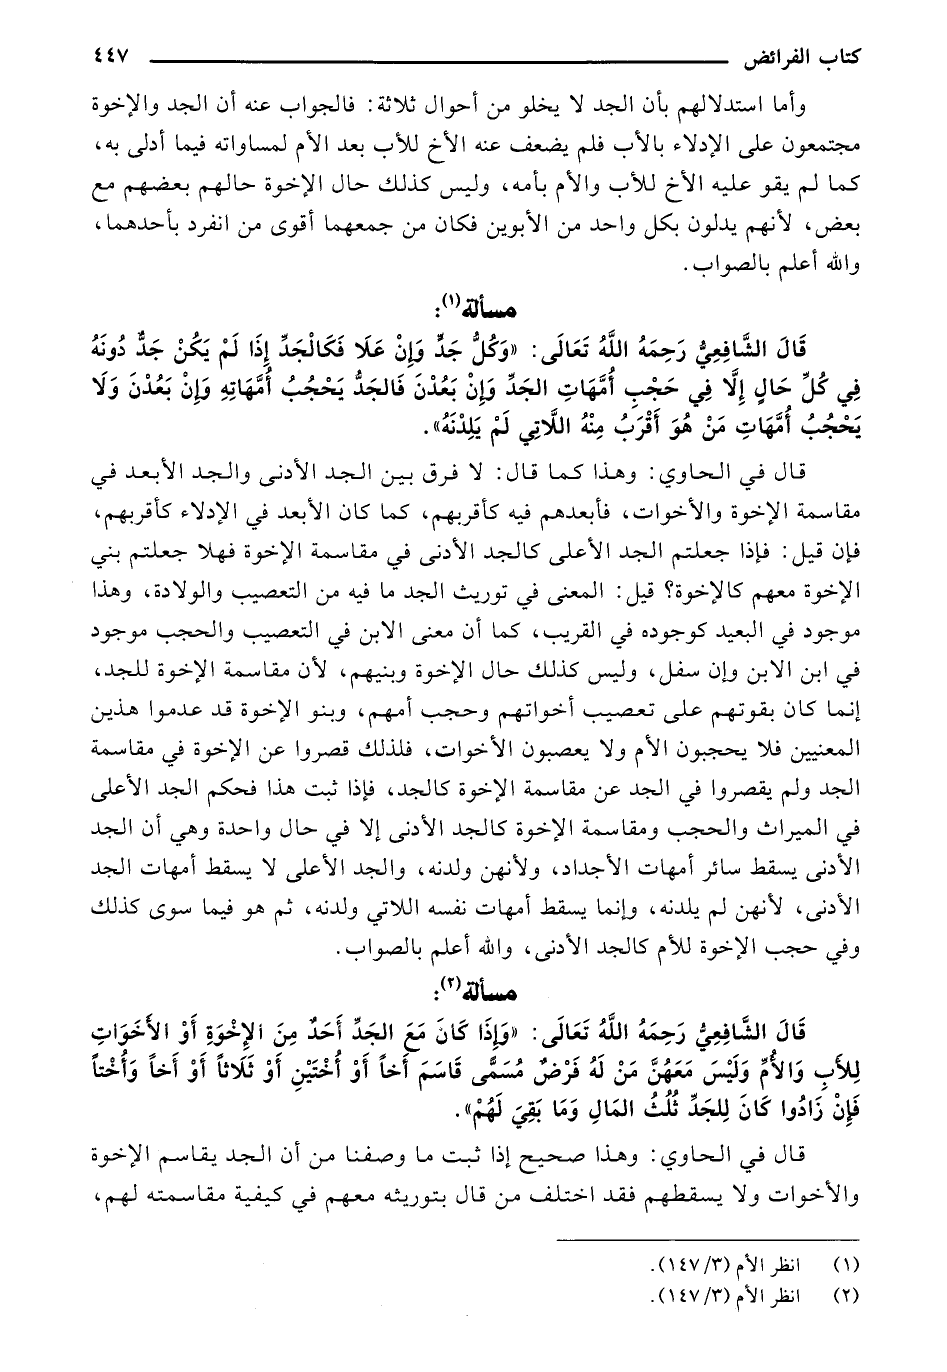 كتاب الفرائض ٤٤٧
وأما استدلالهم بأن الجد لا يخلو من أحوال ثلاثة: فالجواب عنه أن الجد والإخوة
مجتمعون على الإدلاء بالأب فلم يضعف عنه الأخ للأب بعد الأم لمساواته فيما أدلى به،
كما لم يقو عليه الأخ للأب والأم بأمه، وليس كذلك حال الإخوة حالهم بعضهم مع
بعض، لأنهم يدلون بكل واحد من الأبوين فكان من جمعهما أقوى من انفرد بأحدهما،
والله أعلم بالصواب.
مسألة(١):
قَالَ الشَّافِعِيُّ رَحِمَهُ اللَّهُ تَعَالَى: «وَكُلُّ جَدٍّ وَإِنْ عَلَا فَكَالْجَدِّ إِذَا لَمْ يَكُنْ جَدٌّ دُونَهُ
فِي كُلِّ حَالٍ إِلَّا فِي حَجْبِ أُمَّهَاتِ الجَدِّ وَإِنْ بَعُدْنَ فَالجَدُّ يَحْجُبُ أُمَّهَاتِهِ وَإِنْ بَعُدْنَ وَلَا
يَحْجُبُ أُمَّهَاتِ مَنْ هُوَ أَقْرَبُ مِنْهُ اللَّاتِي لَمْ يَلِدْنَهُ».
قال في الحاوي: وهذا كما قال: لا فرق بين الجد الأدنى والجد الأبعد في
مقاسمة الإخوة والأخوات، فأبعدهم فيه كأقربهم، كما كان الأبعد في الإدلاء كأقربهم،
فإن قيل: فإذا جعلتم الجد الأعلى كالجد الأدنى في مقاسمة الإخوة فهلا جعلتم بني
الإخوة معهم كالإخوة؟ قيل: المعنى في توريث الجد ما فيه من التعصيب والولادة، وهذا
موجود في البعيد كوجوده في القريب، كما أن معنى الابن في التعصيب والحجب موجود
في ابن الابن وإن سفل، وليس كذلك حال الإخوة وبنيهم، لأن مقاسمة الإخوة للجد،
إنما كان بقوتهم على تعصيب أخواتهم وحجب أمهم، وبنو الإخوة قد عدموا هذين
المعنيين فلا يحجبون الأم ولا يعصبون الأخوات، فلذلك قصروا عن الإخوة في مقاسمة
الجد ولم يقصروا في الجد عن مقاسمة الإخوة كالجد، فإذا ثبت هذا فحكم الجد الأعلى
في الميراث والحجب ومقاسمة الإخوة كالجد الأدنى إلا في حال واحدة وهي أن الجد
الأدنى يسقط سائر أمهات الأجداد، ولأنهن ولدنه، والجد الأعلى لا يسقط أمهات الجد
الأدنى، لأنهن لم يلدنه، وإنما يسقط أمهات نفسه اللاتي ولدنه، ثم هو فيما سوى كذلك
وفي حجب الإخوة للأم كالجد الأدنى، والله أعلم بالصواب.
مسألة(٢):
قَالَ الشَّافِعِيُّ رَحِمَهُ اللَّهُ تَعَالَى: «وَإِذَا كَانَ مَعَ الجَدِّ أَحَدٌ مِنَ الإِخْوَةِ أَوْ الأَخَوَاتِ
لِلأَبِ وَالأُمِّ وَلَيْسَ مَعَهُنَّ مَنْ لَهُ فَرْضٌ مُسَمَّى قَاسَمَ أَخاً أَوْ أُخْتَيْنِ أَوْ ثَلَاثاً أَوْ أَخاً وَأُخْتاً
فَإِنْ زَادُوا كَانَ لِلجَدِّ ثُلُثُ المَالِ وَمَا بَقِيَ لَهُمْ».
قال في الحاوي: وهذا صحيح إذا ثبت ما وصفنا من أن الجد يقاسم الإخوة
والأخوات ولا يسقطهم فقد اختلف من قال بتوريثه معهم في كيفية مقاسمته لهم،
(١) انظر الأم (١٤٧/٣).
(٢) انظر الأم (١٤٧/٣).